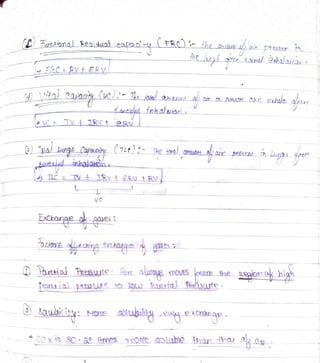 Functional Residual capacity (FRC) :- The volume of air present in
the lungs after normal exhalation.
→ FRC = RV + ERV
Vital Capacity (VC) :- The total amount of air a person can exhale after
forceful inhalation.
→ VC = TV + IRV + ERV
Total Lungs Capacity (TLC) :- The total amount of air present in lungs after
forceful inhalation.
→ TLC = TV + IRV + ERV + RV
VC
Exchange of gases :
Factors affecting exchange of gases :
① Partial Pressure : Air always moves from the region of high
partial pressure to low Partial Pressure.
② Solubility : More solubility, easy exchange.
* CO2 is 20-25 times more soluble than that of O2.